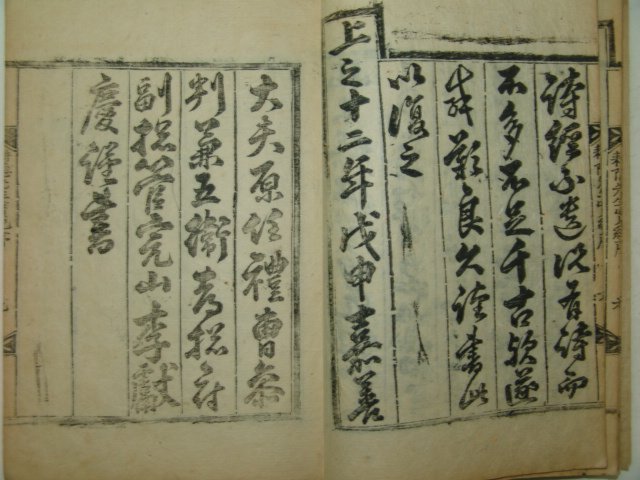 詩經不遺況有詩而
不多不足千古歟遂
歎良久謹書此
以復之
上之十二年戊申嘉善
大夫原任禮曹參
判兼五衛都摠府
副摠管完山李獻
慶謹書